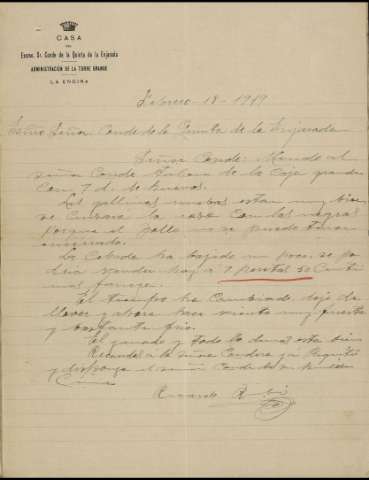 CASA
DEL
Excmo. Sr. Conde de la Quinta de la Enjarada
ADMINISTRACIÓN DE LA TORRE GRANDE
LA ENCIRA
Febrero 18-1919
Señor Conde de la Quinta de la Enjarada
Señor Conde: Mando al
señor Conde de la Caja grande
Con 7 d. de huevos.
Las gallinas nuebas estan muy bien
se la casa Con las negras
porque el pollo no se puede tener
La Cebada ha bajado un poco, se po
dria vender hoy a 7 pesetas 50 Centi
mos fanega.
El tiempo ha Cambiado dejo de
llover y ahora hace viento muy fuerte
y bastante frio.
El ganado y todo lo demas esta bien
Recuerdos a la señora Condesa y a Paquito
y disponga el señor Conde de su
Ricardo